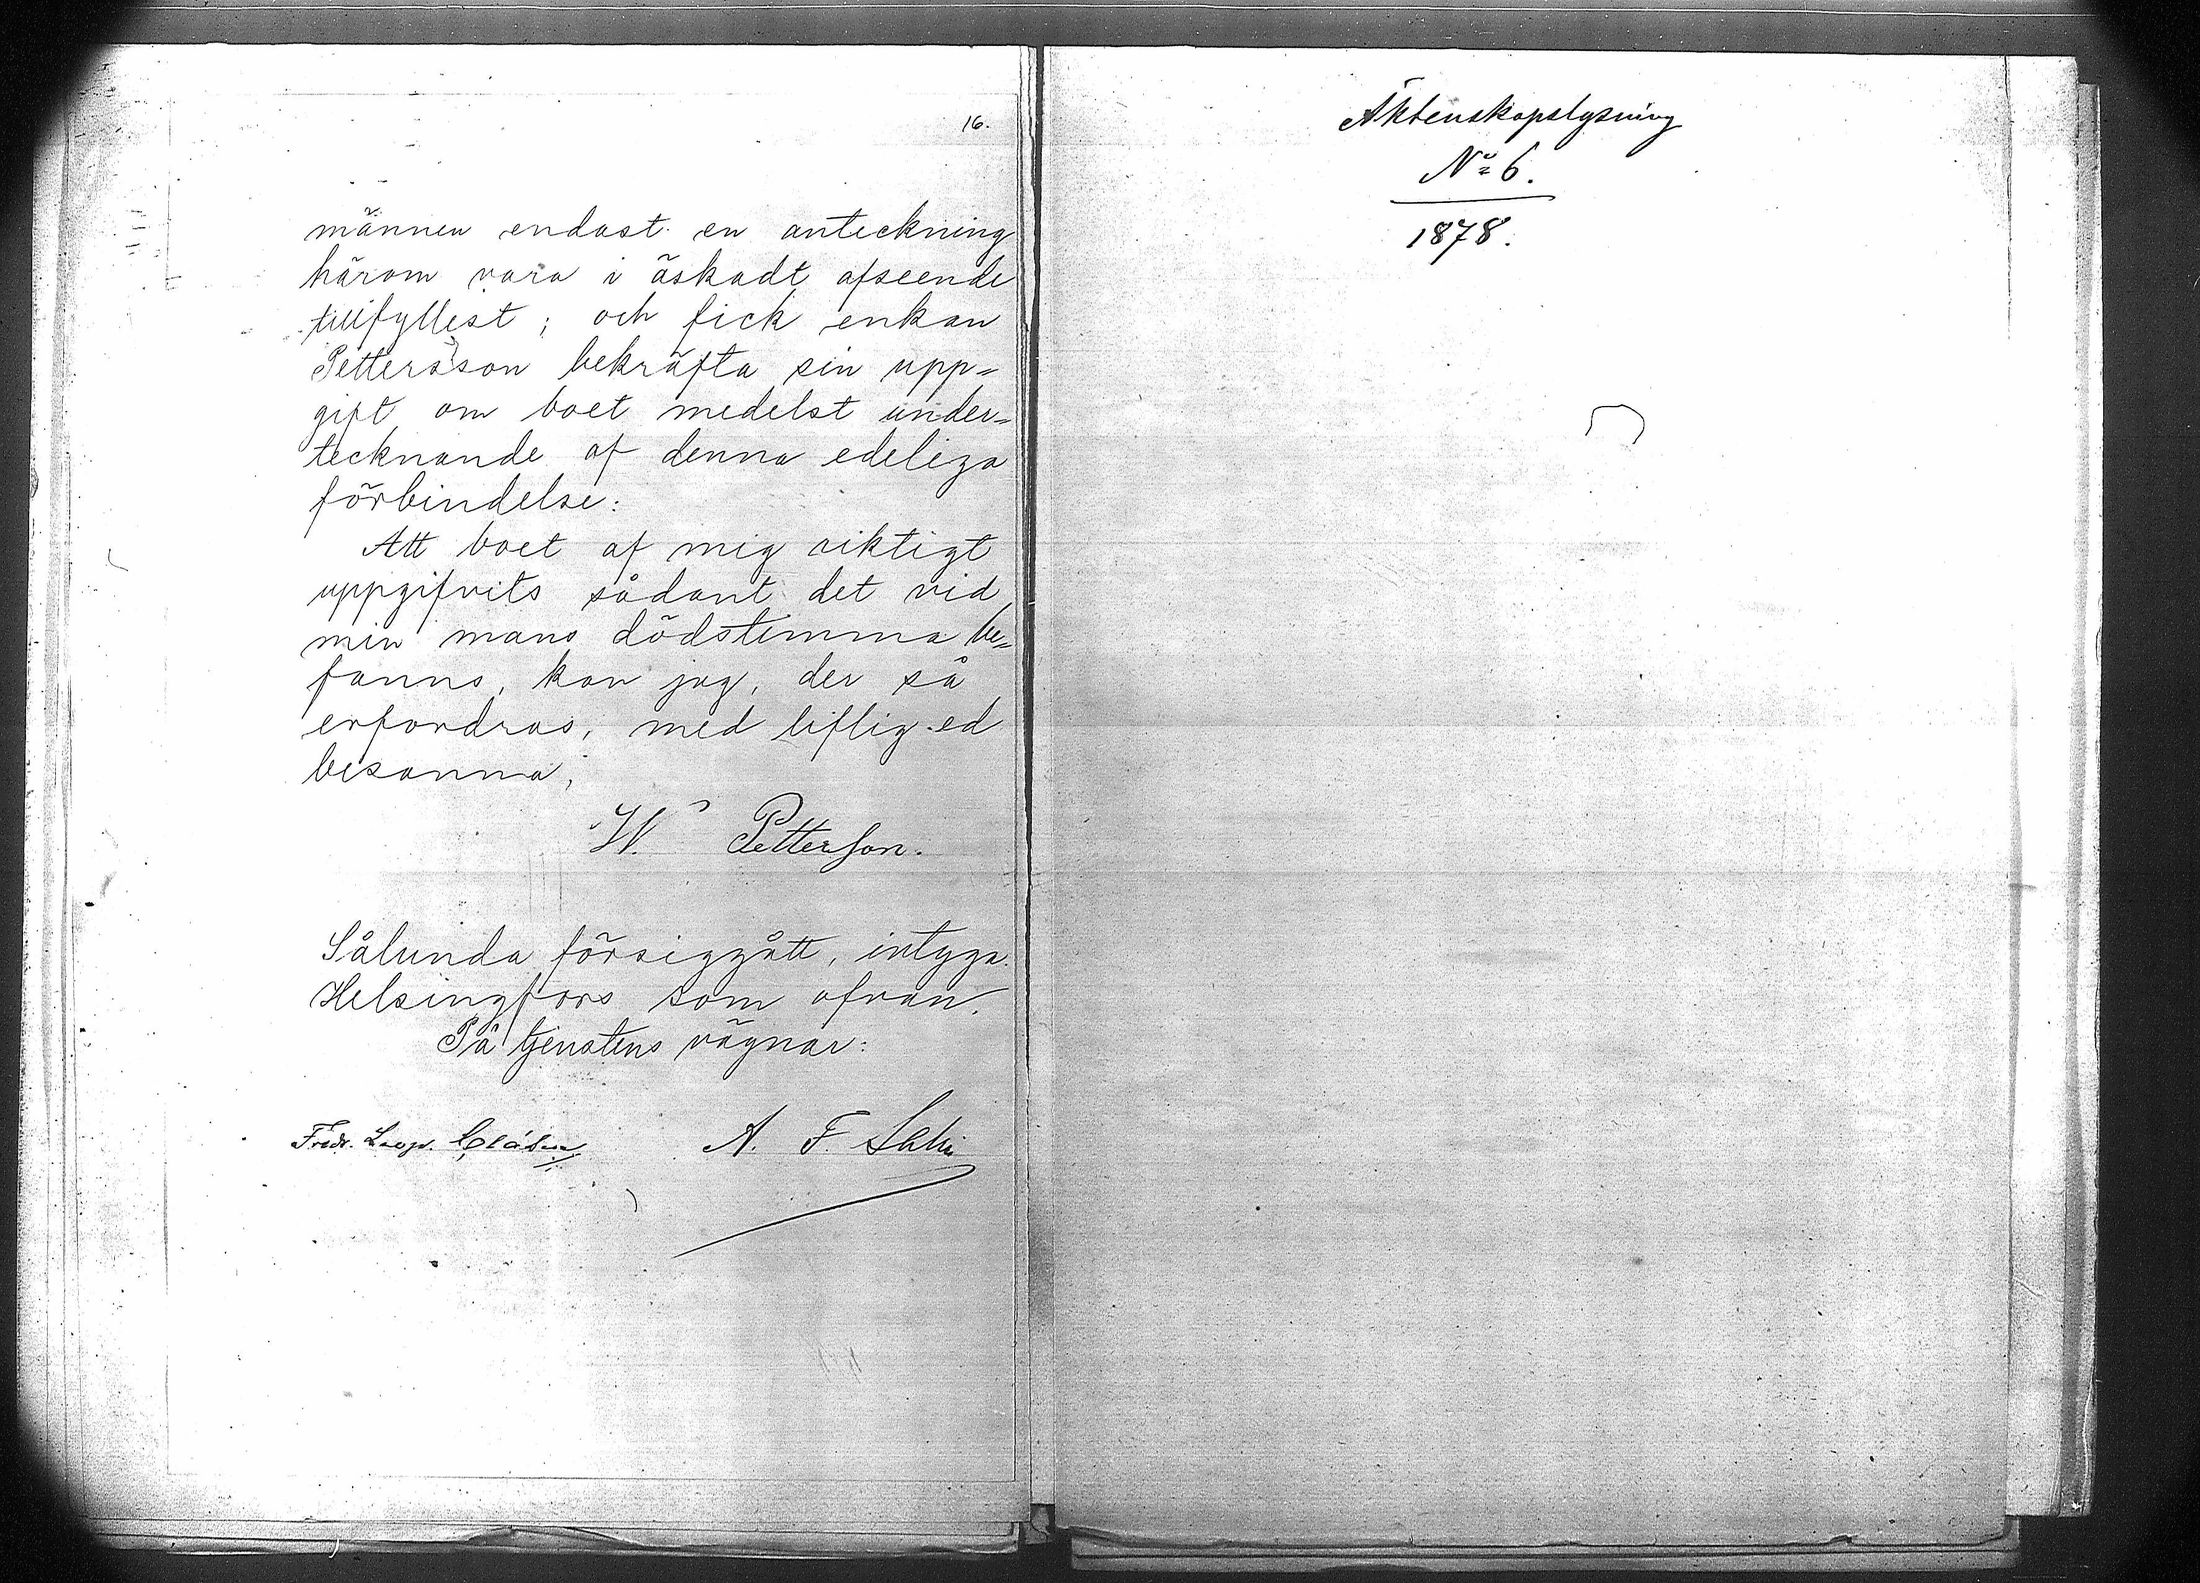 16.
männen endast en anteckning
härom vara i äskadt afseende
tillfyllest; och fick enkan
Pettersson bekräfta sin upp=
gift om boet medelst under=
tecknande af denna edeliga
förbindelse:
Att boet af mig riktigt
uppgifvits sådant det vid
min mans dödstimma be=
fanns, kan jag, der så
erfordras, med liflig ed
besanna;
W. Petterson.
Sålunda försiggått, intyga.
Helsingfors som ofvan.
På tjenstens vägnar:
Fredr. Leop.
A. F.
Äktenskapslysning
No 6.
1878.